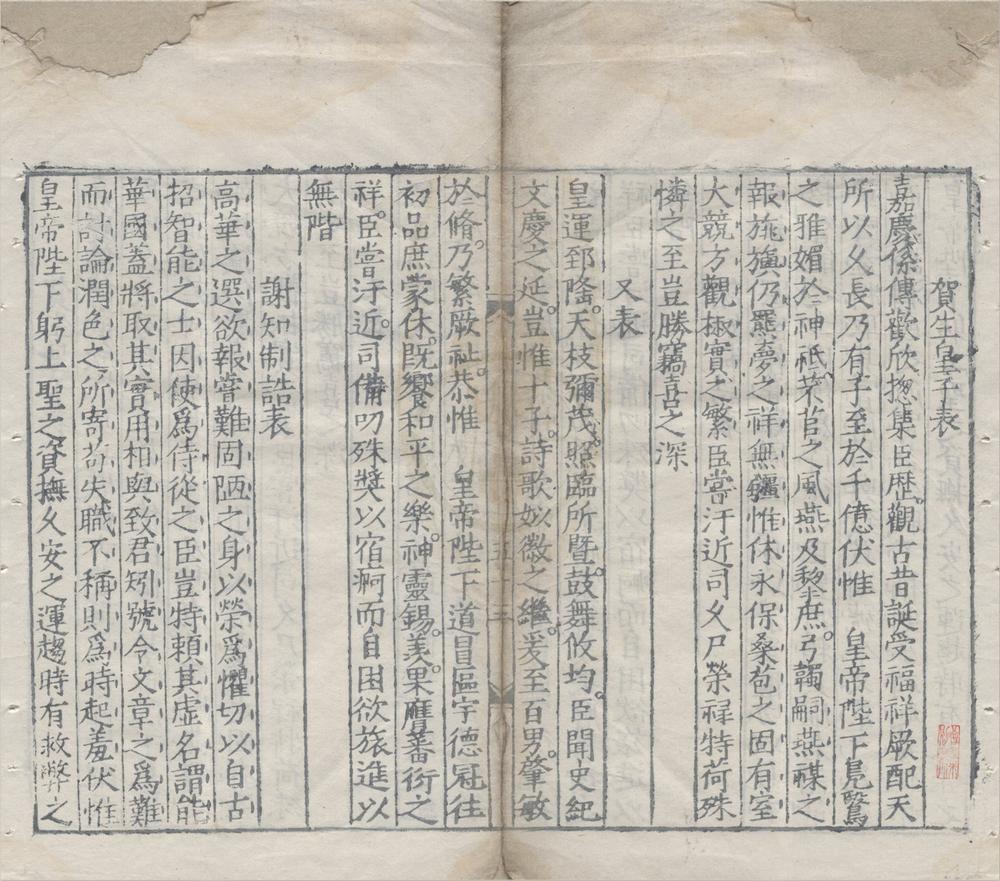 賀生皇子表
嘉慶係傳歡欣揔集臣歴觀古昔誕受福祥厥配天
所以久長乃有子至於千億伏惟　皇帝陛下鳬鷖
之雅媚於神祇芣苢之風燕及黎庶弓韣嗣燕禖之
報旐旟仍羆夢之祥無疆惟休永保桑苞之固有室
大競方觀椒實之繁臣嘗汙近司久尸榮禄特荷殊
憐之至豈勝竊喜之深
又表
皇運郅隆天枝彌茂照臨所曁鼓舞攸均臣聞史紀
文慶之延豈惟十子詩歌姒徽之繼爰至百男肇敏
於脩乃繁厥祉恭惟　皇帝陛下道冒區宇德冠往
初品庶蒙休既饗和平之樂神靈錫羨果膺蕃衍之
祥臣嘗汙近司備叨殊奬以宿痾而自困欲旅進以
無階
謝知制誥表
高華之選欲報嘗難固陋之身以榮爲懼切以自古
招智能之士因使爲侍從之臣豈特賴其虚名謂能
華國蓋將取其實用相與致君矧號令文章之爲難
而討論潤色之所寄苟失職不稱則爲時起羞伏惟
皇帝陛下躬上聖之資撫久安之運趨時有救弊之
五十三